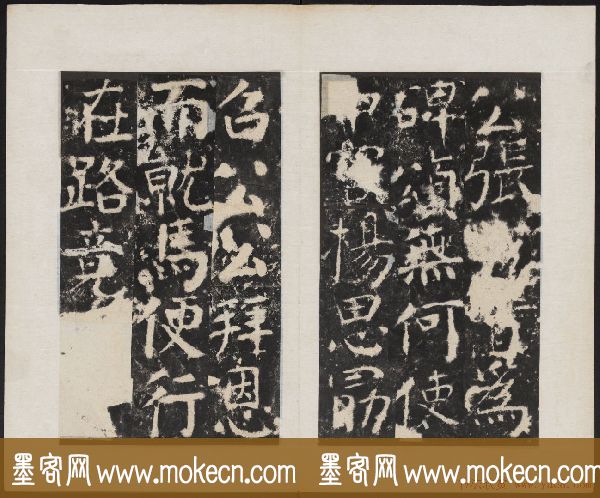 公張為
碑頌無何使
中楊思勗
召公公拜恩
而就馬便行
在路竟
墨客网 www.mokecn.com
墨客网 www.mokecn.com